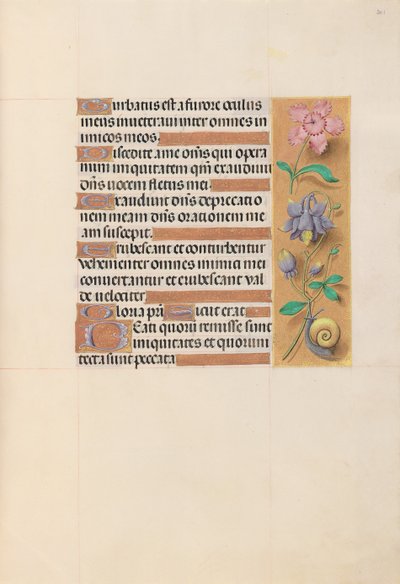 Turbatus est a furore oculus
meus inveteravi inter omnes in
imicos meos.
Discedite a me om̄s qui opera
mini iniquitatem qm̄ exaudivit
dn̄s vocem fletus mei.
Exaudivit dn̄s depreccatio
nem meam dn̄s orationem me
am suscepit.
Erubescant et conturbentur
vehementer omnes inimici mei
convertantur et erubescant val
de velociter.
Gloria pr̄i Sicut erat
BEati quorū remisse sunt
iniquitates et quorum
tecta sunt peccata